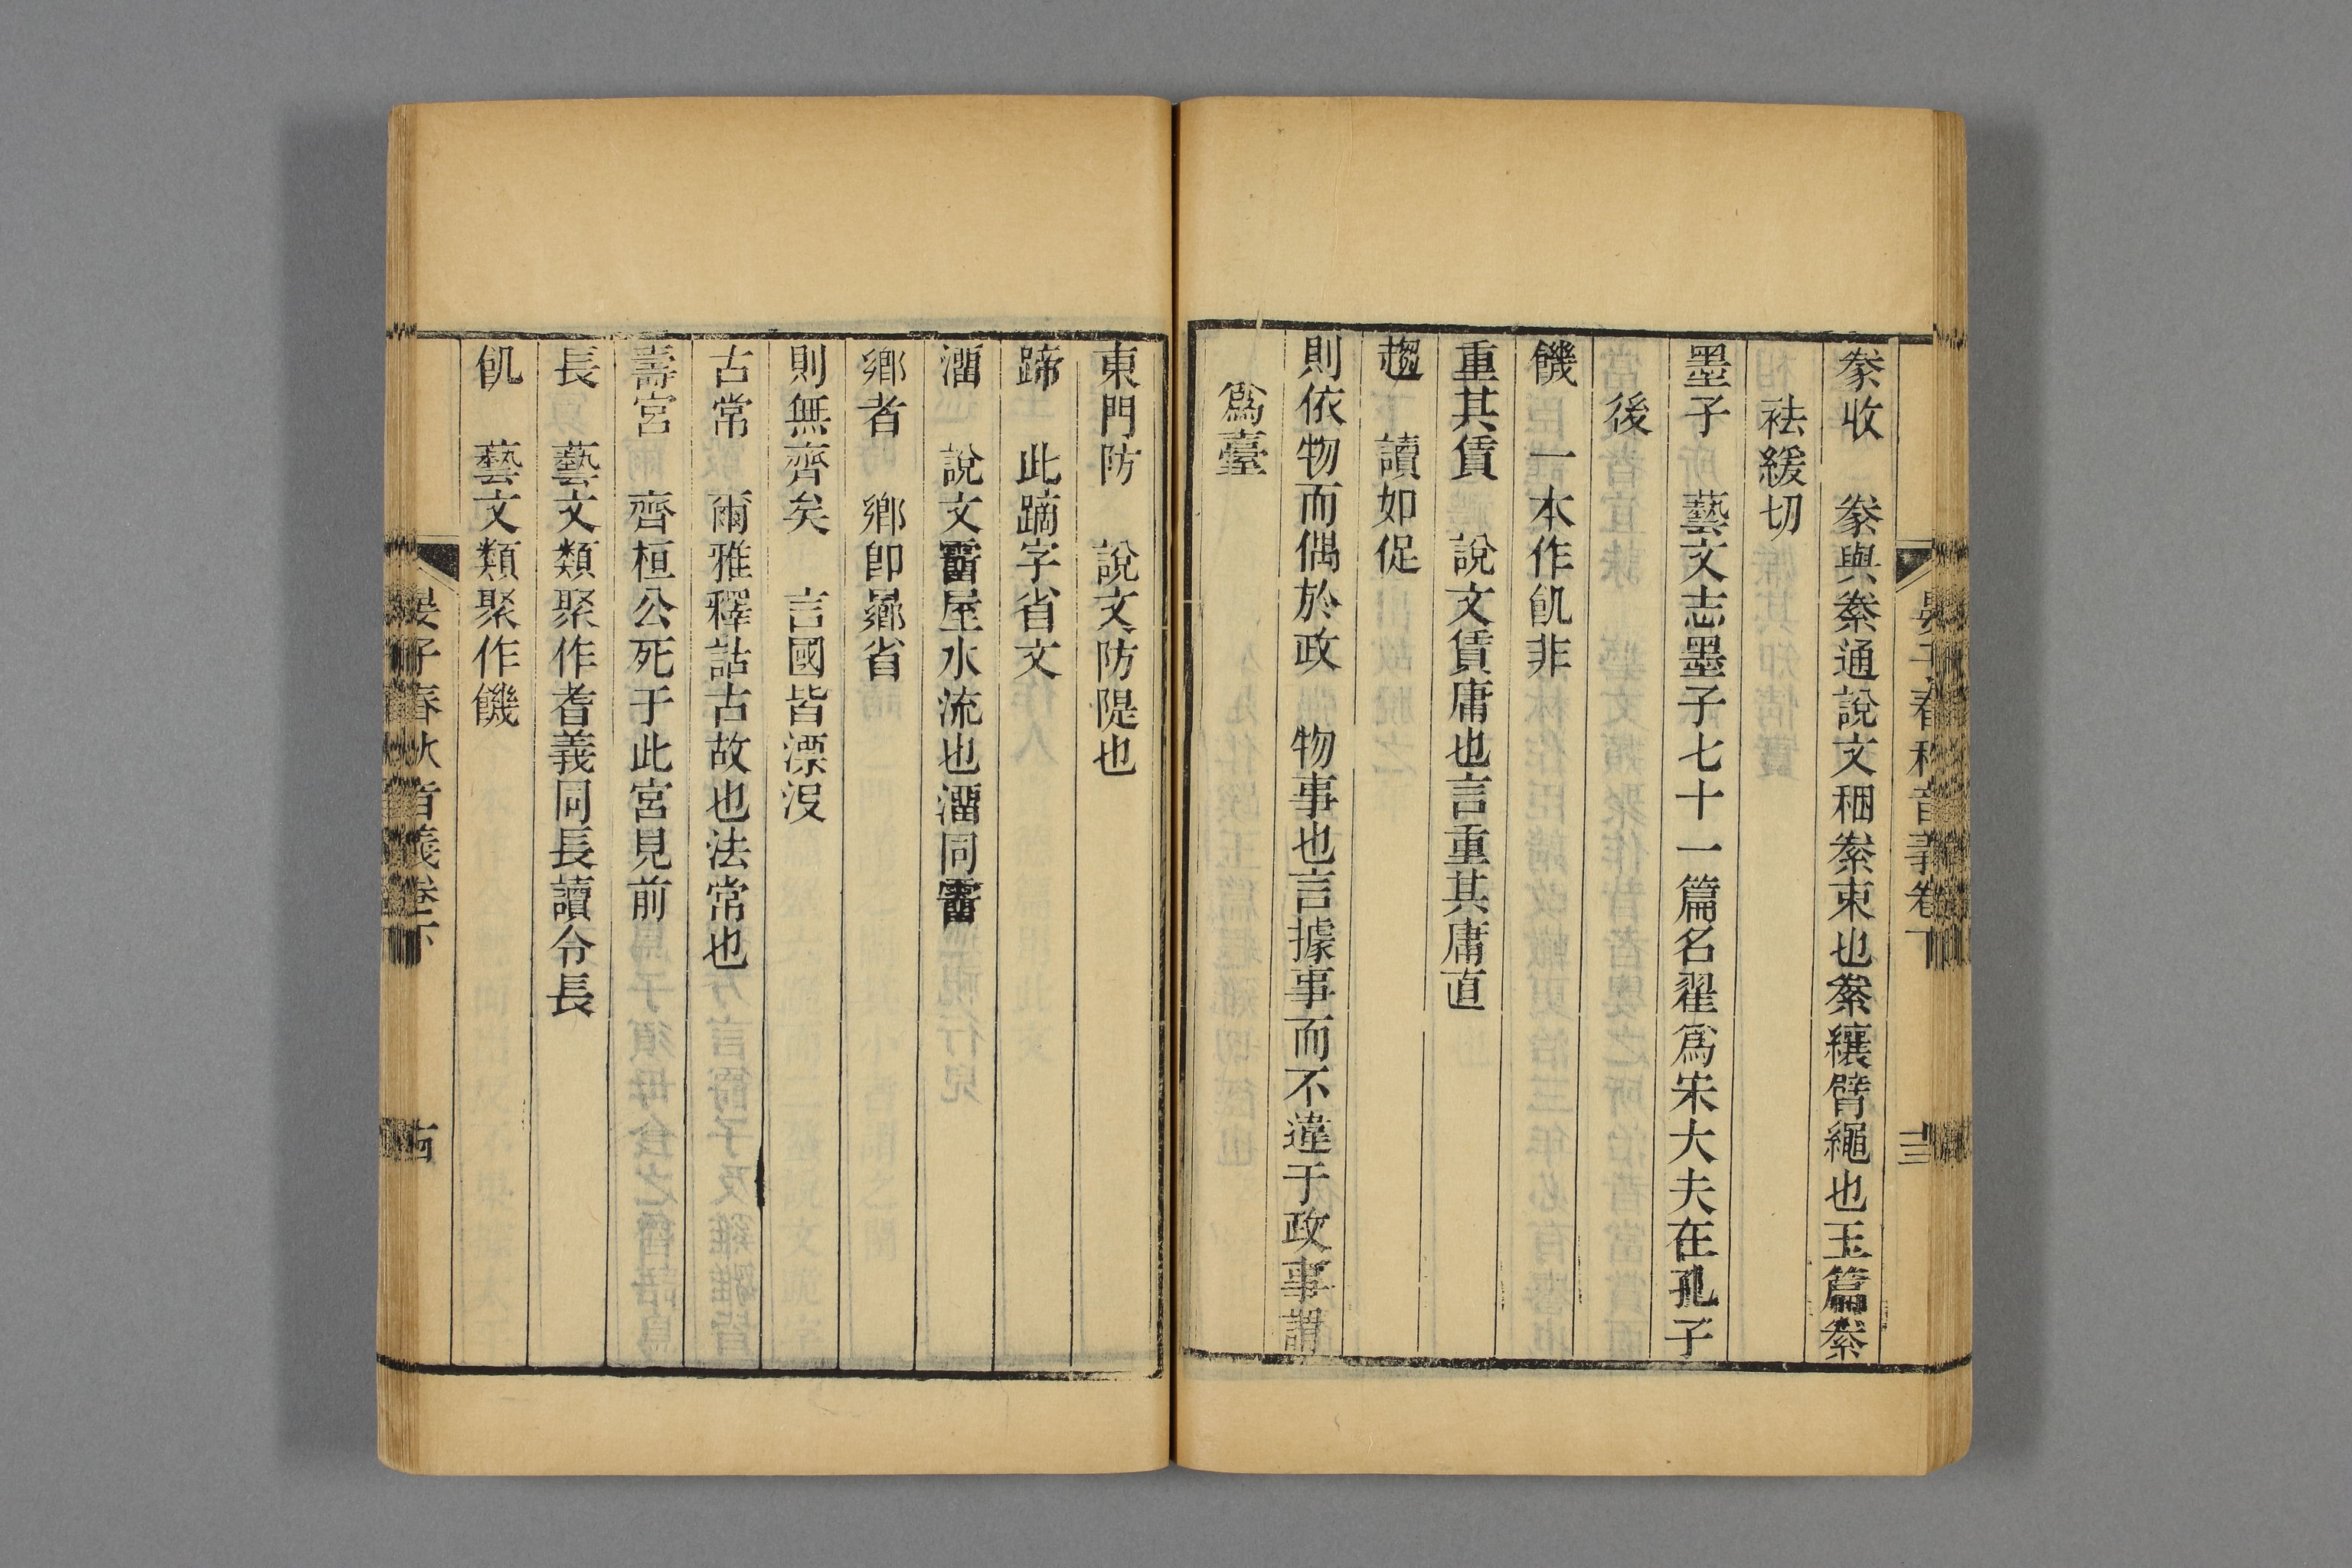 豢收　豢與絭通說文稛絭束也絭纕臂繩也玉篇絭
祛緩切
墨子　藝文志墨子七十一篇名翟爲宋大夫在孔子
後
饑　一本作飢非
重其賃　說文賃庸也言重其庸直
趨　讀如促
則依物而偶於政　物事也言據事而不違于政事謂
爲臺
東門防　說文防隄也
蹄　此蹢字省文
澑　說文霤屋水流也澑同霤
鄉者　鄉卽曏省
則無齊矣　言國皆漂沒
古常　爾雅釋詁古故也法常也
壽宮　齊桓公死于此宮見前
長　藝文類聚作耆義同長讀令長
飢　藝文類聚作饑
晏子春秋音義卷下